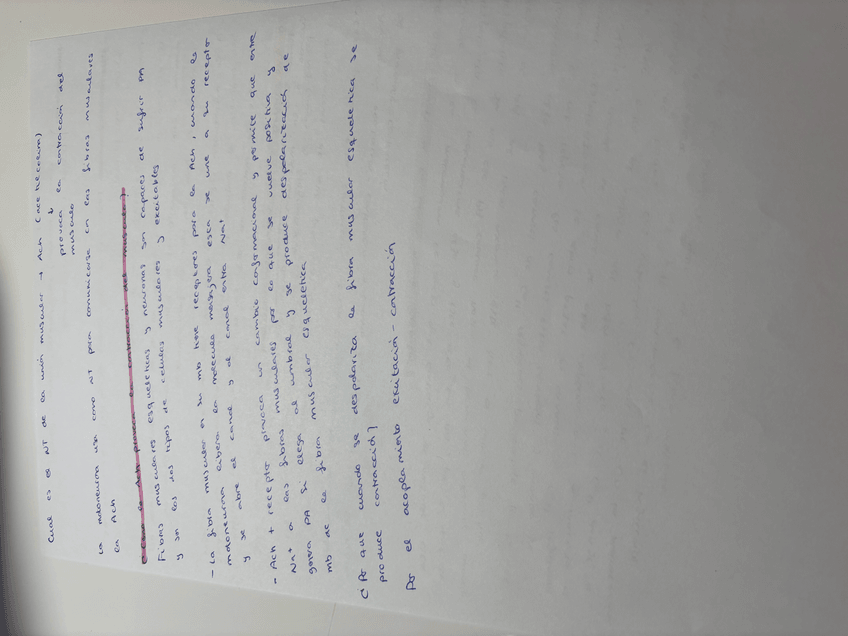 Cual es el NT de la unión muscular → Ach (acetilcolina)
↓
provoca la contracción del
musculo
La motoneurona usa como NT para comunicarse con las fibras musculares
la Ach
¿Como la Ach provoca la contracción del musculo?
Fibras musculares esqueleticas y neuronas son capaces de sufrir PA
y son los dos tipos de celulas musculares y excitables
- La fibra muscular en su mb tiene receptores para la Ach, cuando la
motoneurona libera la molecula mensajera esta se une a su receptor
y se abre el canal y al canal entra Na+
- Ach + receptor provoca un cambio conformacional y permite que entre
Na+ a las fibras musculares por lo que se vuelve positiva y
genera PA si llega al umbral y se produce despolarización de
mb de la fibra muscular esqueletica
¿Por que cuando se despolariza la fibra muscular esqueletica se
produce contracción?
Por el acoplamiento excitación - contracción